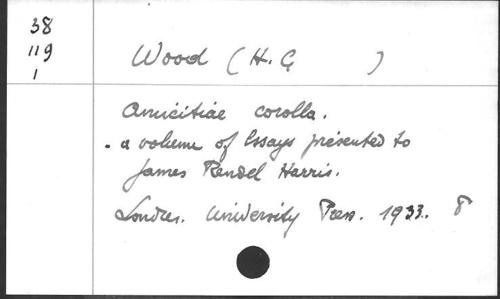 38
119
1
Wood (H. G )
Amicitiae corolla.
. a volume of Essays presented to
James Rendel Harris.
Londres. University Press. 1933. 8